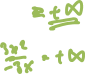 = +∞
3x²/-3x = +∞